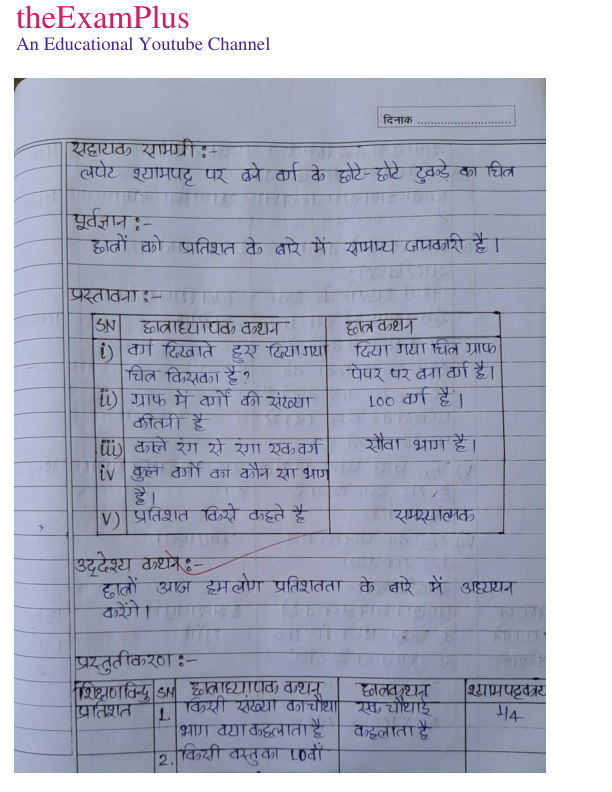 theExamPlus
An Educational Youtube Channel
दिनांक ............................
सहायक सामग्री :-
लपेट श्यामपट्ट पर बने वर्ग के छोटे-छोटे टुकड़े का चित्र
पूर्वज्ञान :-
छात्रों को प्रतिशत के बारे में सामान्य जानकारी है।
प्रस्तावना :-
SN छात्राध्यापक कथन छात्र कथन
i) वर्ग दिखाते हुए दिया गया दिया गया चित्र ग्राफ
चित्र किसका है? पेपर पर बना वर्ग है।
ii) ग्राफ में वर्गों की संख्या 100 वर्ग है।
कीतनी है
iii) काले रंग से रंगा एक वर्ग सौवा भाग है।
iv कुल वर्गों का कौन सा भाग
है।
v) प्रतिशत किसे कहते है समस्यात्मक
उद्देश्य कथन :-
छात्रों आज हम लोग प्रतिशतता के बारे में अध्ययन
करेंगे।
प्रस्तुतीकरण :-
शिक्षणविन्दु SN छात्राध्यापक कथन छात्रकथन
प्रतिशत 1. किसी संख्या का चौथा एक चौथाई 1/4
भाग क्या कहलाता है कहलाता है
2. किसी वस्तु का 10वाँ